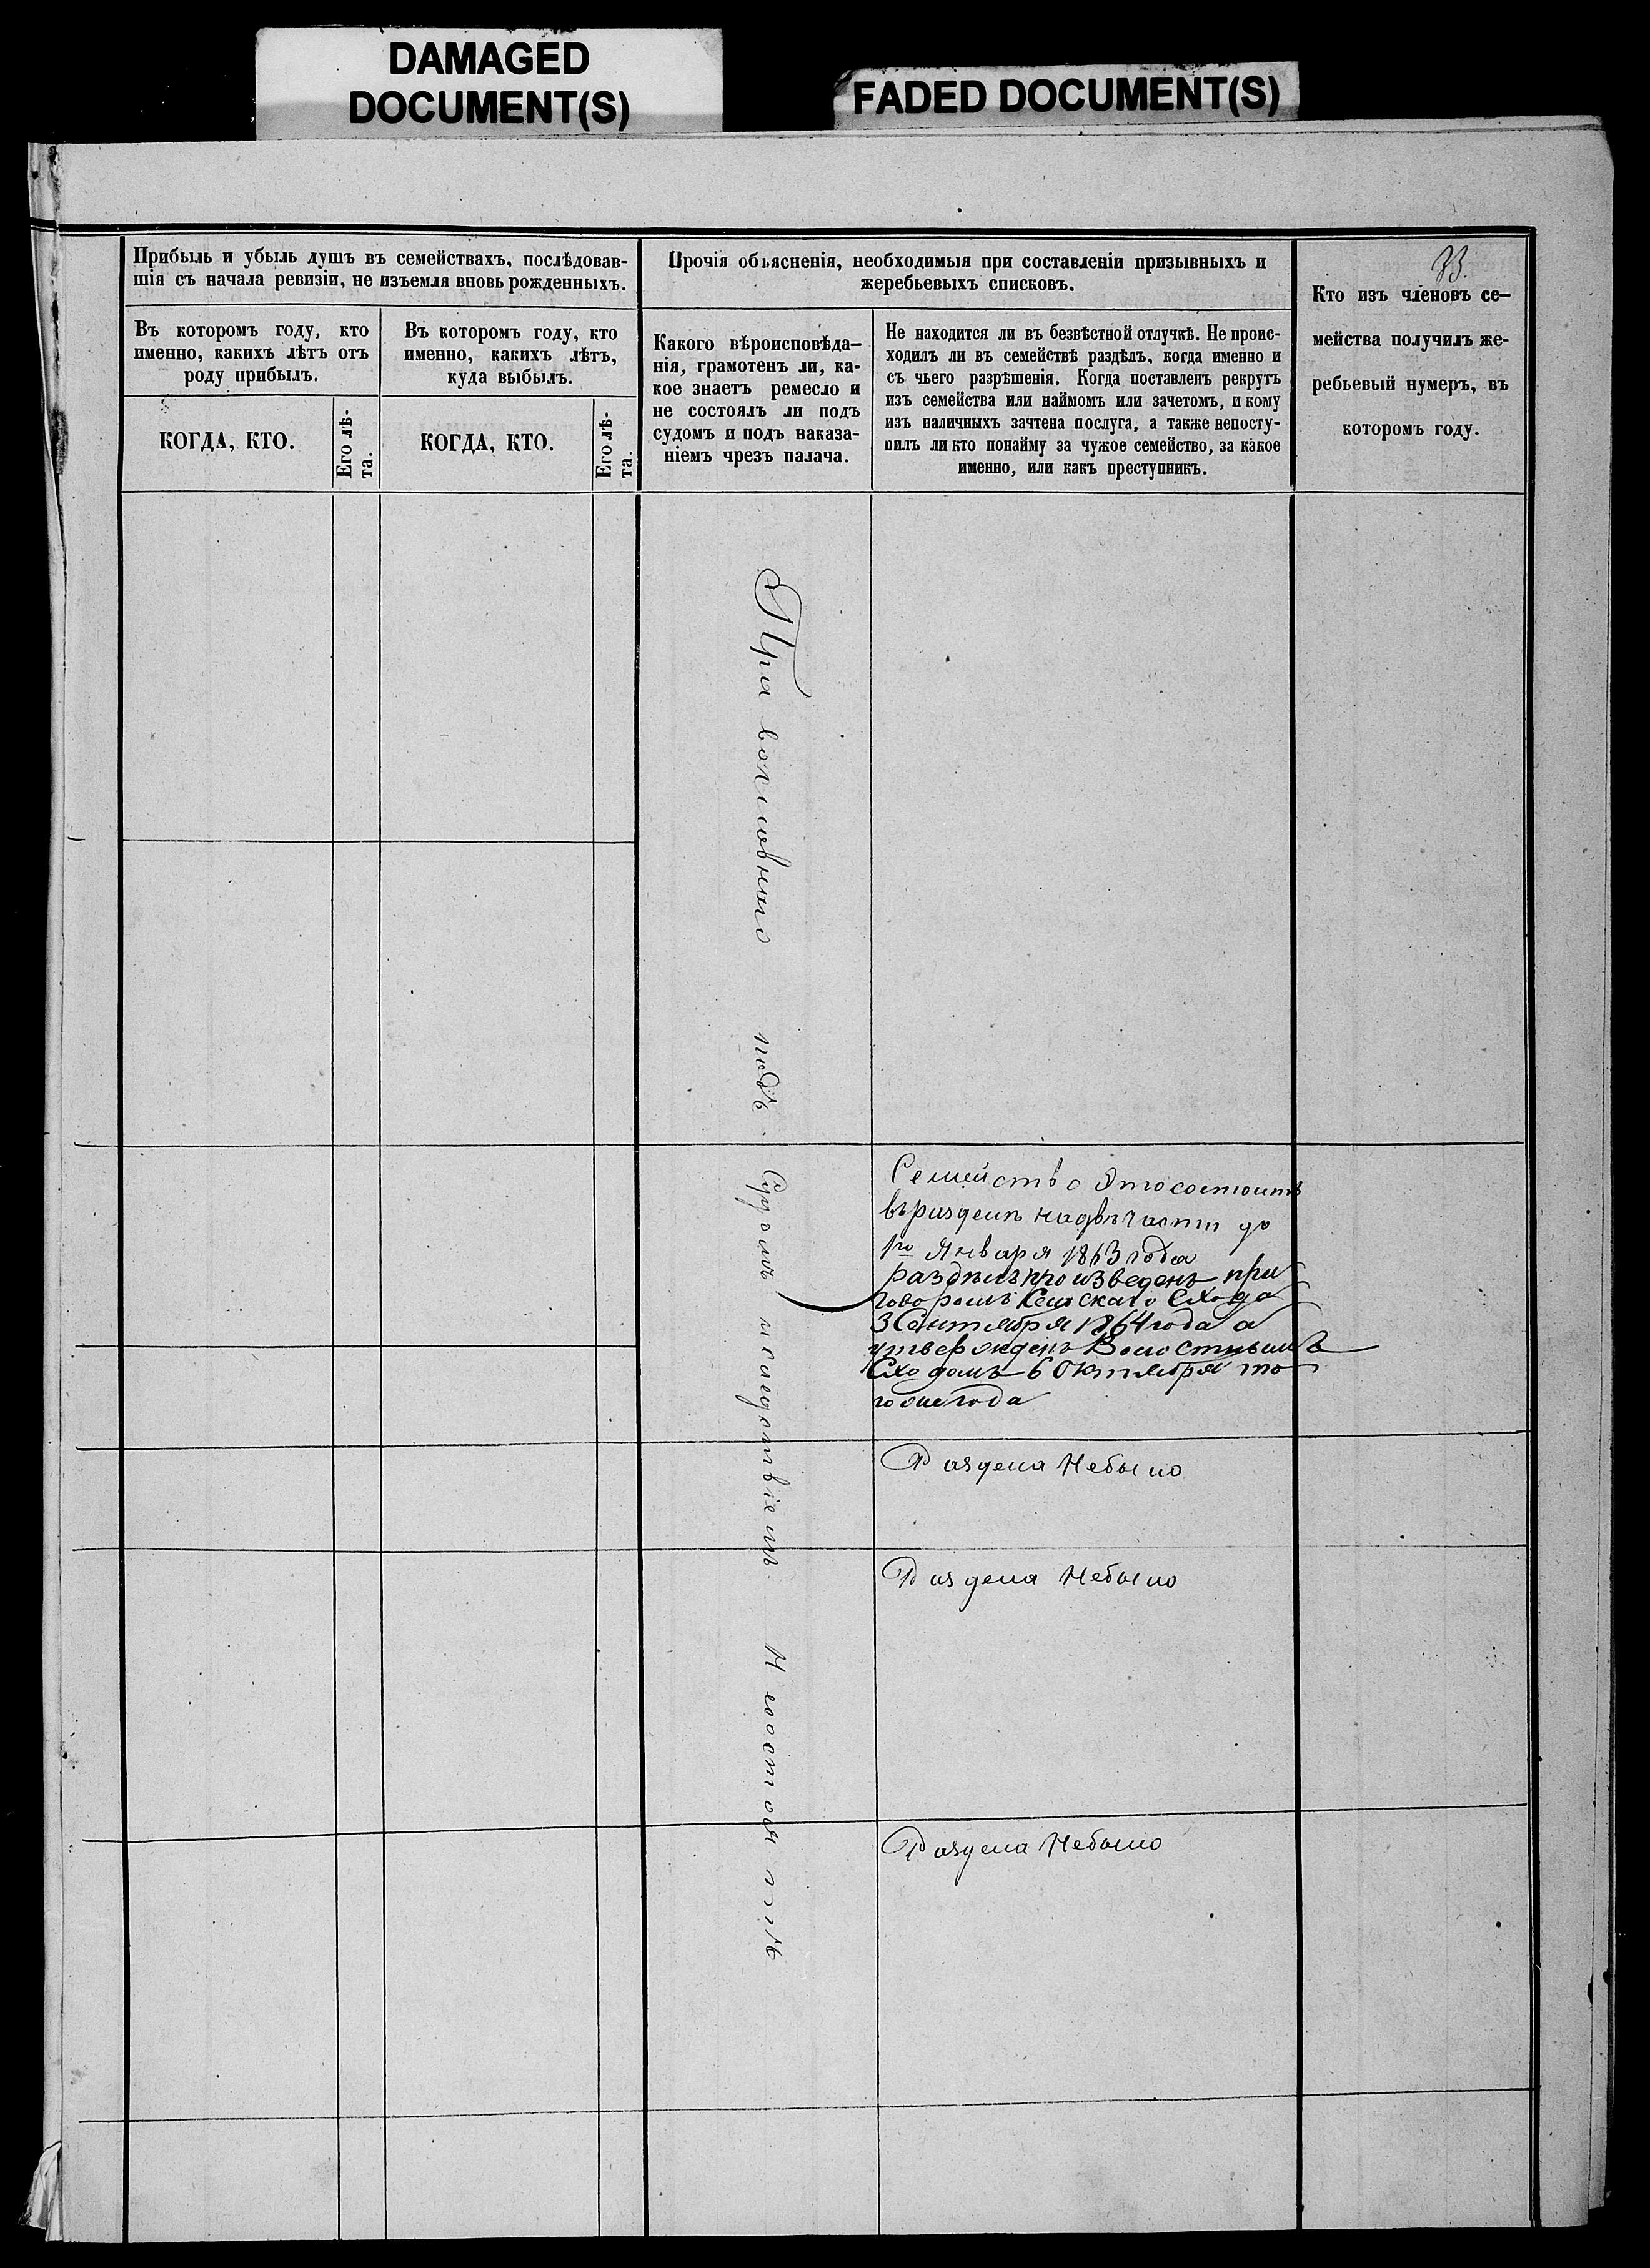 DAMAGED
DOCUMENT(S)
FADED DOCUMENT(S)
33.
Прибыль и убыль душъ въ семействахъ, послѣдовав-
шія съ начала ревизіи, не изъемля вновь рожденныхъ.
Въ которомъ году, кто
именно, какихъ лѣтъ отъ
роду прибылъ.
КОГДА, КТО.
Его лѣ-
та.
Въ которомъ году, кто
именно, какихъ лѣтъ,
куда выбылъ.
КОГДА, КТО.
Его лѣ-
та.
Прочія объясненія, необходимыя при составленіи призывныхъ и
жеребьевыхъ списковъ.
Какого вѣроисповѣда-
нія, грамотенъ ли, ка-
кое знаетъ ремесло и
не состоялъ ли подъ
судомъ и подъ наказа-
ніемъ чрезъ палача.
Не находится ли въ безвѣстной отлучкѣ. Не проис-
ходилъ ли въ семействѣ раздѣлъ, когда именно и
съ чьего разрѣшенія. Когда поставленъ рекрутъ
изъ семейства или наймомъ или зачетомъ, и кому
изъ наличныхъ зачтена послуга, а также непосту-
пилъ ли кто понайму за чужое семейство, за какое
именно, или какъ преступникъ.
Кто изъ членовъ се-
мейства получилъ же-
ребьевый нумеръ, въ
которомъ году.
Православнаго подъ Судомъ ислѣдствіемъ Несостоятъ
Семейство Это состоитъ
въ разделѣ надвѣ части до
1го Января 1863 года
раздѣлъ произведенъ при
говоромъ Сельскаго Схода
3 Сентября 1864 года а
утвержденъ Волостнымъ
Сходомъ 6 Октября то
гоже года
Раздела Небыло
Раздела Небыло
Раздела Небыло